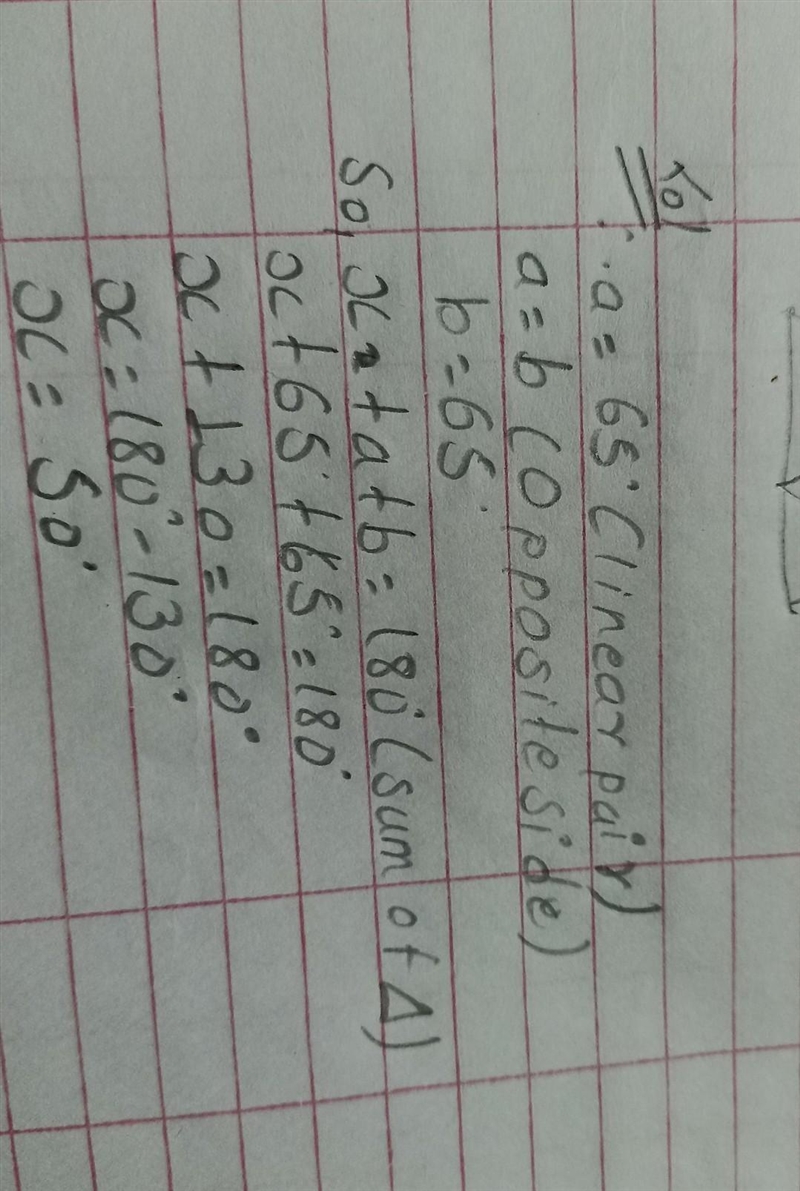 Sol
∴ a = 65° (linear pair)
a = b (opposite side)
b = 65°
So, x + a + b = 180° (sum of Δ)
x + 65° + 65° = 180°
x + 130 = 180°
x = 180° - 130°
x = 50°